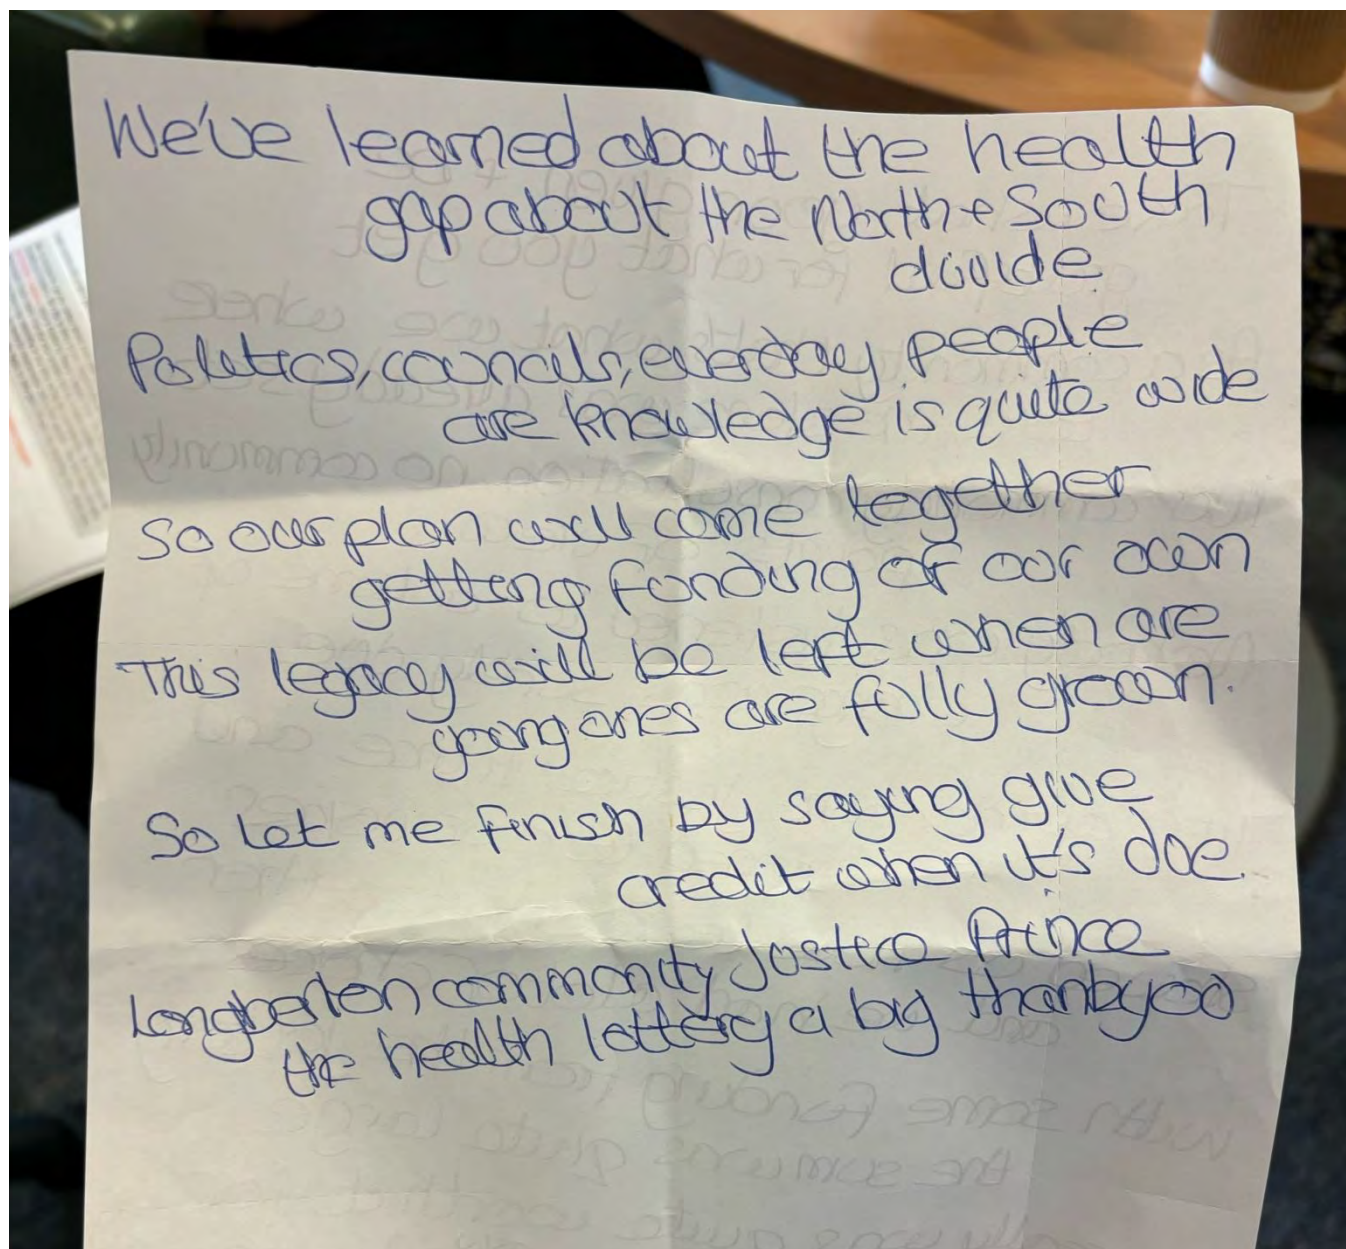 We've learned about the health
gap about the North + South
divide.
Politics, councils, everday people
are knowledge is quite wide
So our plan will come together
getting funding of our own
This legacy will be left when are
young ones are fully grown.
So Let me finish by saying give
credit when it's due.
Longbenton community Justice Prince
the health lottery a big thankyou